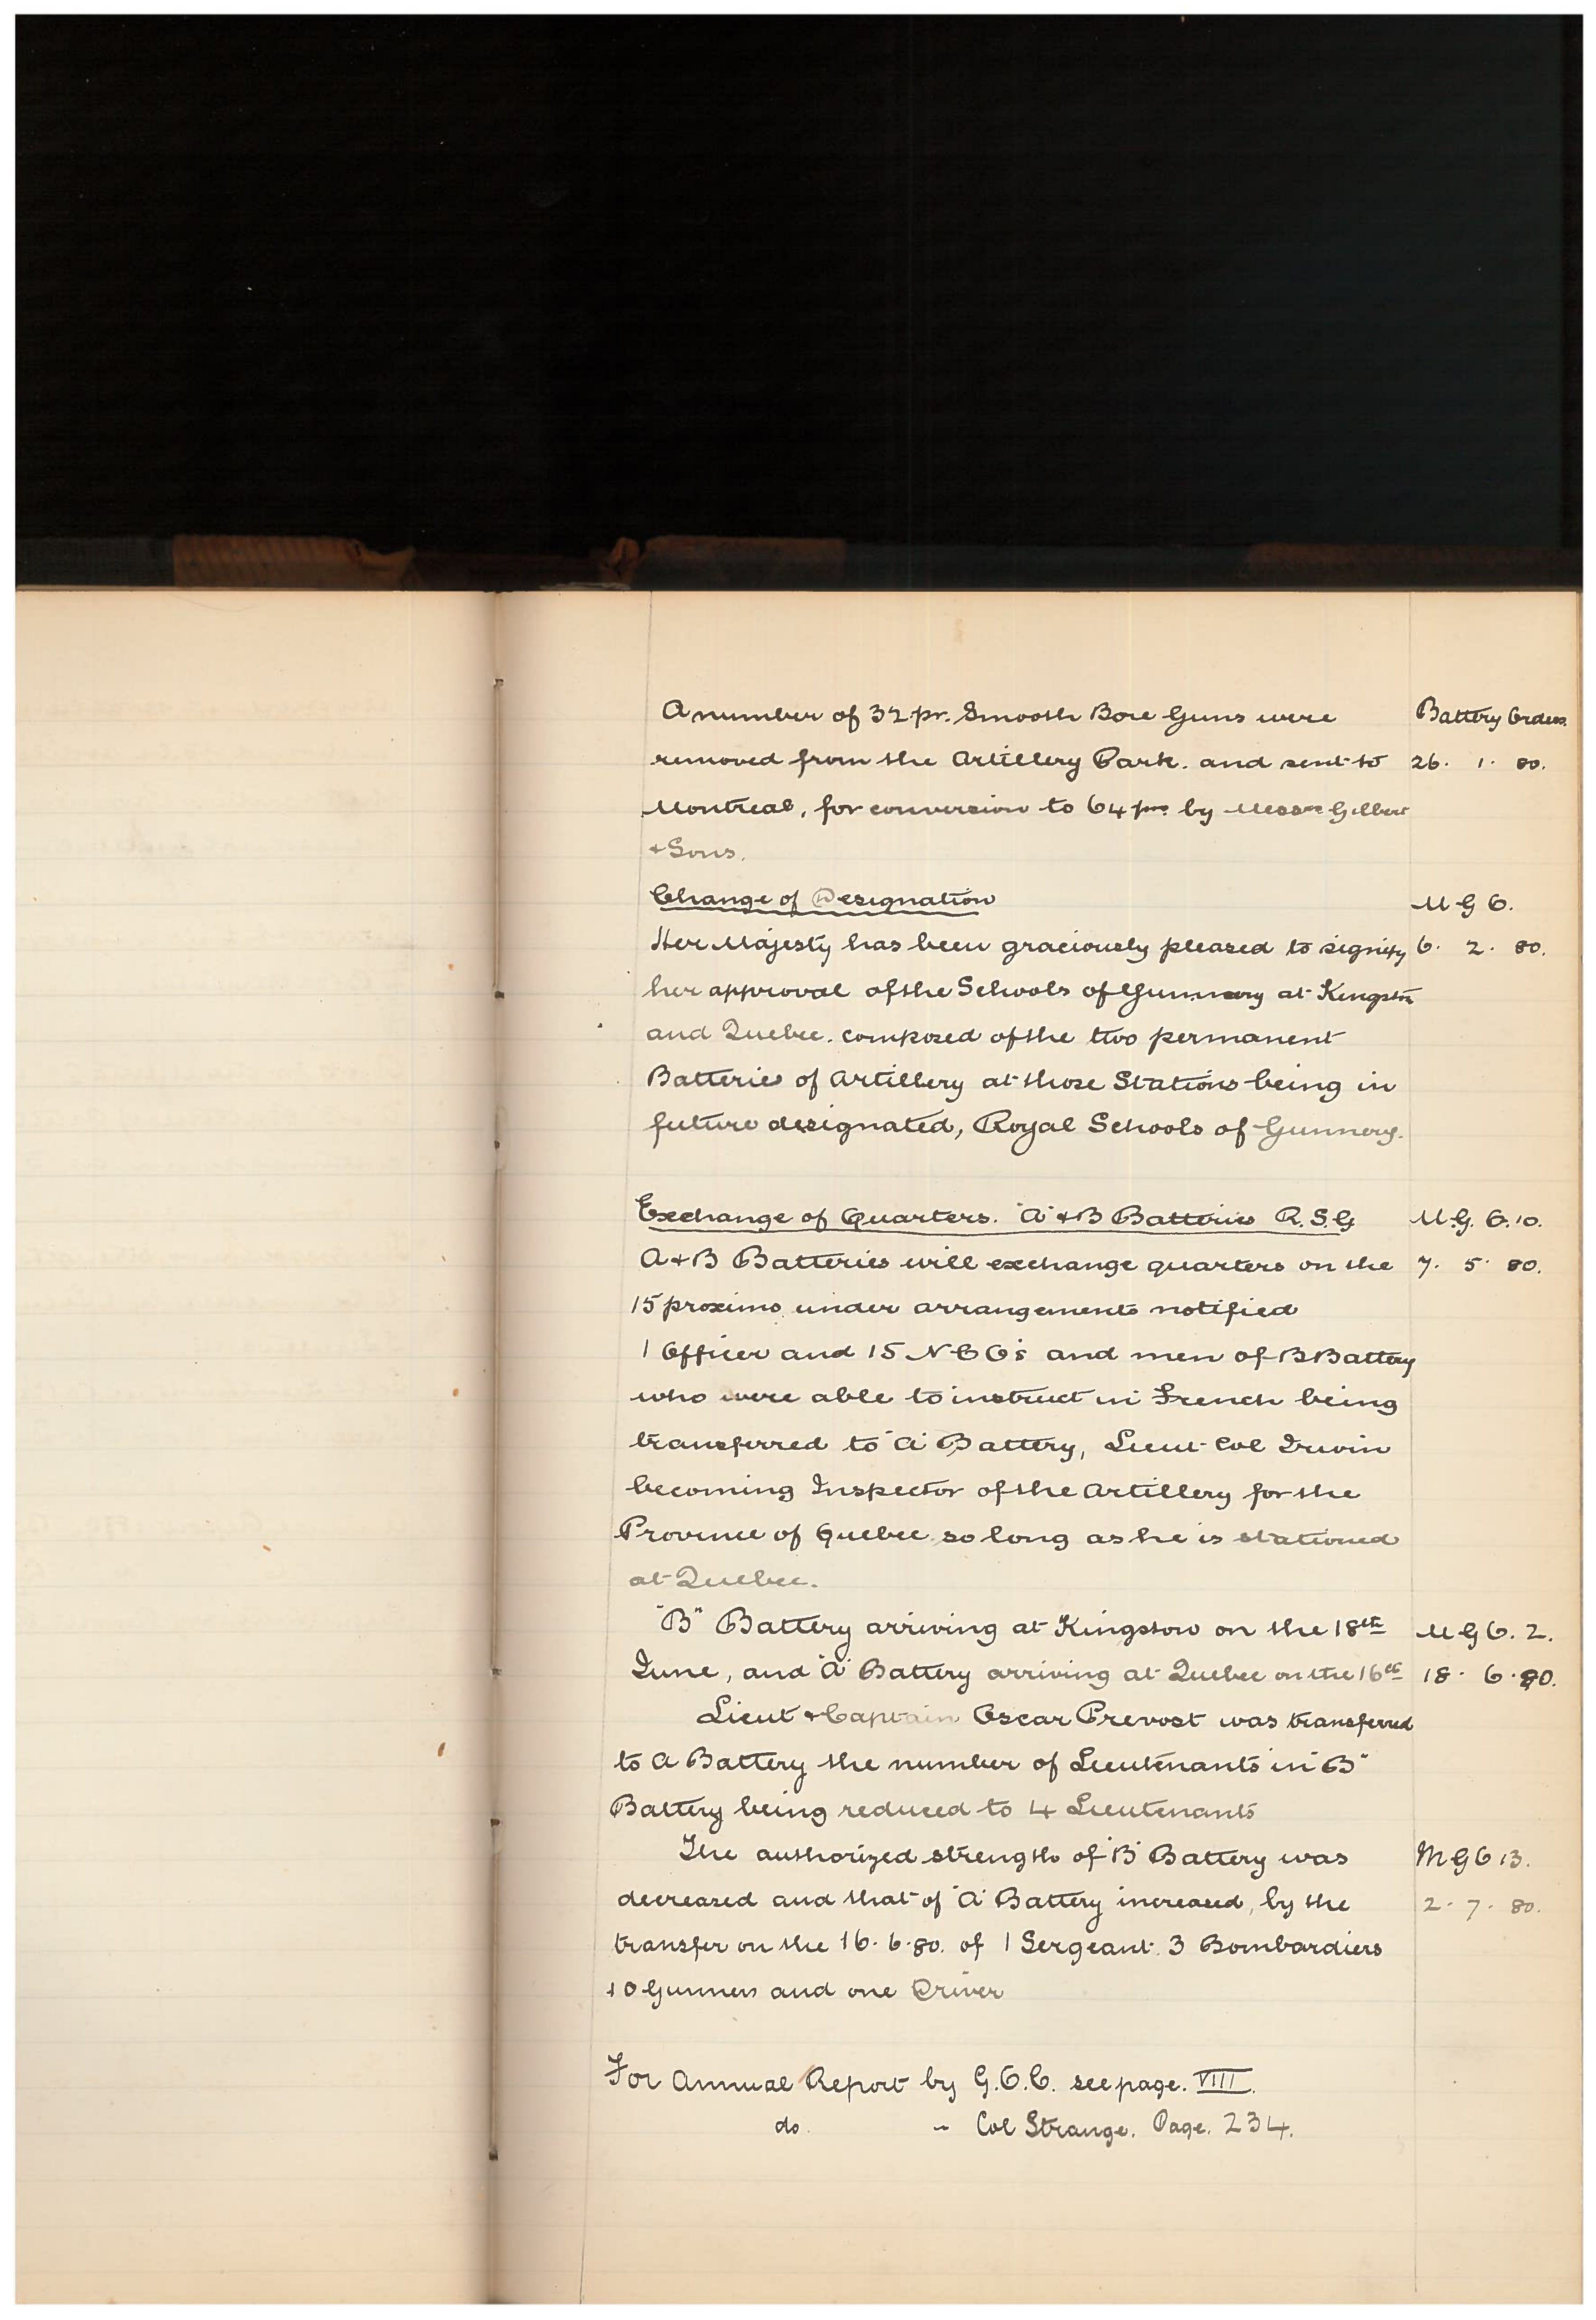 A number of 32 pr. Smooth Bore Guns were Battery Orders.
removed from the Artillery Park. and sent to 26. 1. 80.
Montreal, for conversion to 64 prs. by Messrs Gilbert
& Sons.
Change of Designation M G O.
Her Majesty has been graciously pleased to signify 6. 2. 80.
her approval of the Schools of Gunnery at Kingston
and Quebec. composed of the two permanent
Batteries of Artillery at those Stations being in
future designated, Royal Schools of Gunnery.
Exchange of Quarters. "A" & B Batteries R.S.G M.G. O. 10.
A & B Batteries will exchange quarters on the 7. 5. 80.
15 proximo under arrangements notified
1 Officer and 15 N C O's and men of B Battery
who were able to instruct in French being
transferred to "A" Battery, Lieut- Col Irwin
becoming Inspector of the Artillery for the
Province of Quebec so long as he is stationed
at Quebec.
"B" Battery arriving at Kingston on the 18th M G O. 2.
June, and "A" Battery arriving at Quebec on the 16th 18. 6. 80.
Lieut & Captain Oscar Prevost was transferred
to A Battery the number of Lieutenants in "B"
Battery being reduced to 4 Lieutenants
The authorized strength of "B" Battery was M G O 13.
decreased and that of "A" Battery increased, by the 2. 7. 80.
transfer on the 16. 6. 80. of 1 Sergeant. 3 Bombardiers
10 Gunners and one Driver
For Annual Report by G.O.C. see page. VIII.
do. " Col Strange. Page. 234.